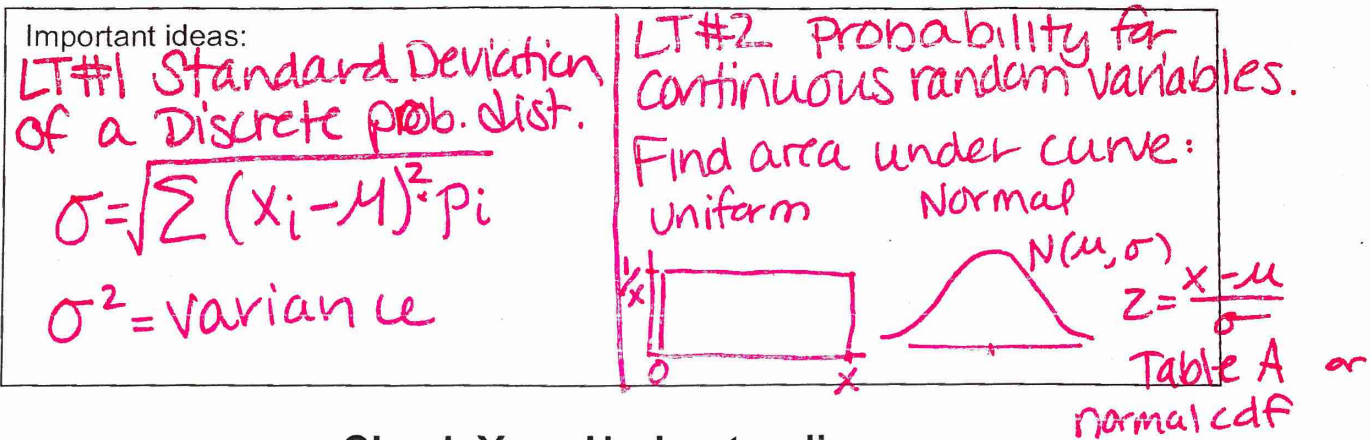 Important ideas:
LT#1 Standard Deviation
of a Discrete prob. dist.
σ=√Σ(xᵢ-μ)²·pᵢ
σ²=variance
LT#2 Probability for
continuous random variables.
Find area under curve:
uniform Normal
1/x
0 x
N(μ,σ)
z=x-μ/σ
Table A or
normalcdf